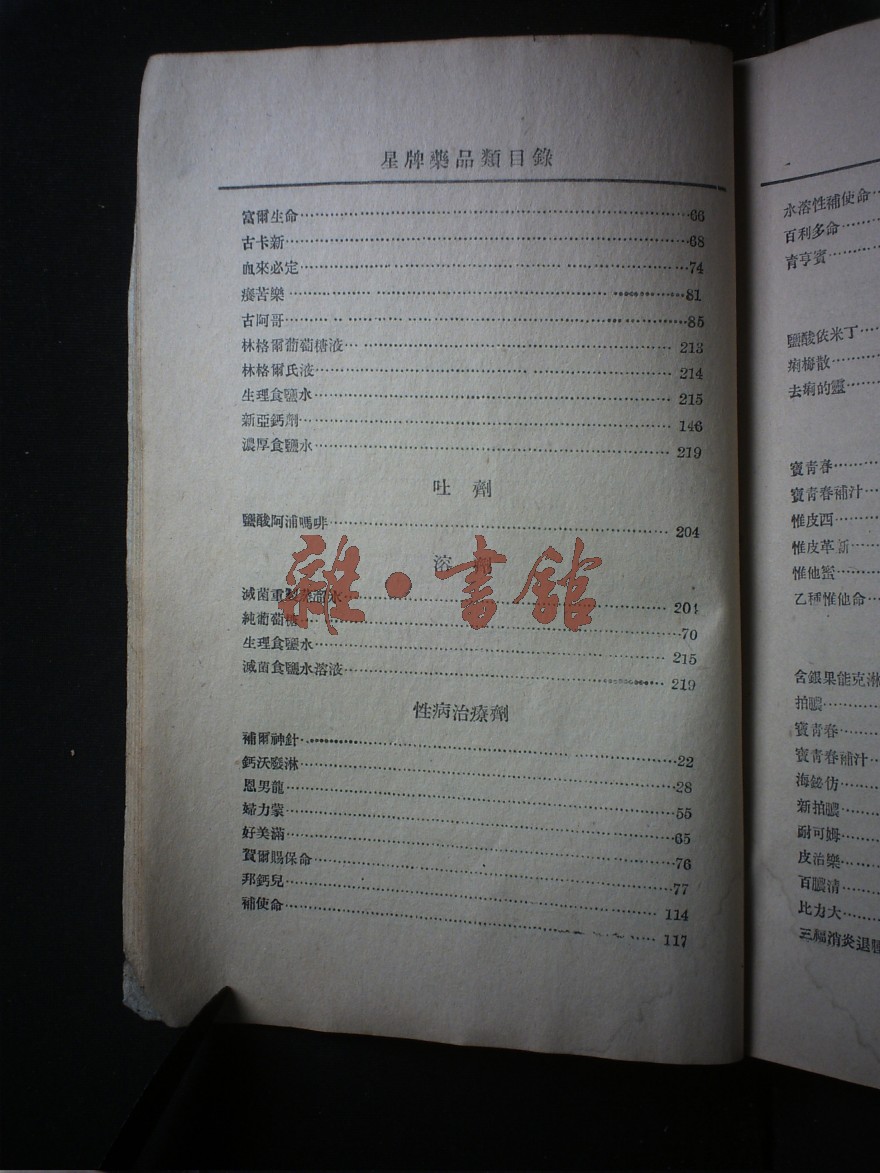 星牌藥品類目錄
富爾生命 66
古卡新 68
血來必定 74
癢苦樂 81
古阿哥 85
林格爾葡萄糖液 213
林格爾氏液 214
生理食鹽水 215
新亞鈣劑 146
濃厚食鹽水 219
吐劑
鹽酸阿浦嗎啡 204
溶劑
滅菌重製蒸溜水 201
純葡萄糖 70
生理食鹽水 215
滅菌食鹽水溶液 219
性病治療劑
補爾神針 22
鈣沃醱淋 28
恩男龍 55
婦力蒙 65
好美滿 76
賀爾賜保命 77
邦鈣兒 114
補使命 117
雜·書館
水溶性補使命
百利多命
育亨賓
鹽酸依米丁
痢梅散
去痢的靈
寶青春
寶青春補汁
惟皮西
惟皮革新
惟他蜜
乙種惟他命
含銀果能克淋
拍膿
寶青春
寶青春補汁
海鉍仿
新拍膿
耐可姆
皮治樂
百膿清
比力大
三福消炎退